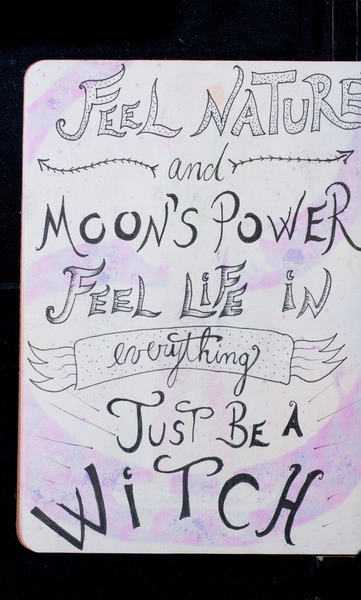 FEEL NATURE
and
MOON'S POWER
FEEL LiFE iN
everything
JUST BE A
WiTCH